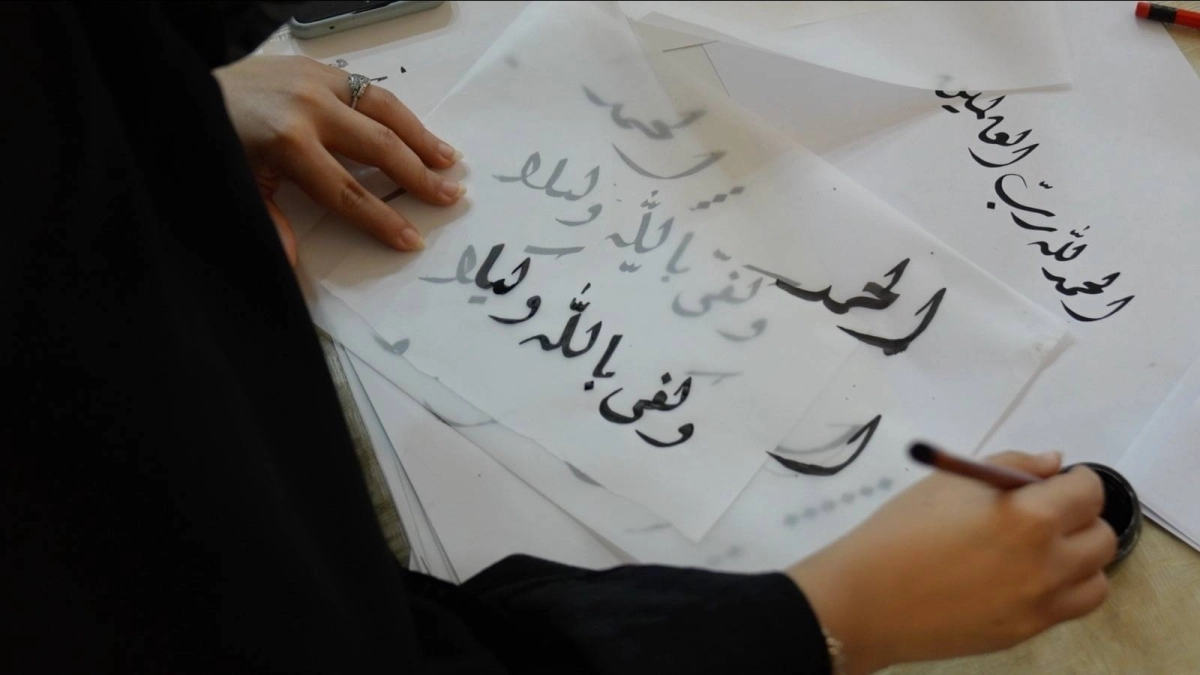 الحمد لله ربّ العالمين
الحمد
وكفى بالله وكيلا
الحمد
وكفى بالله وكيلا